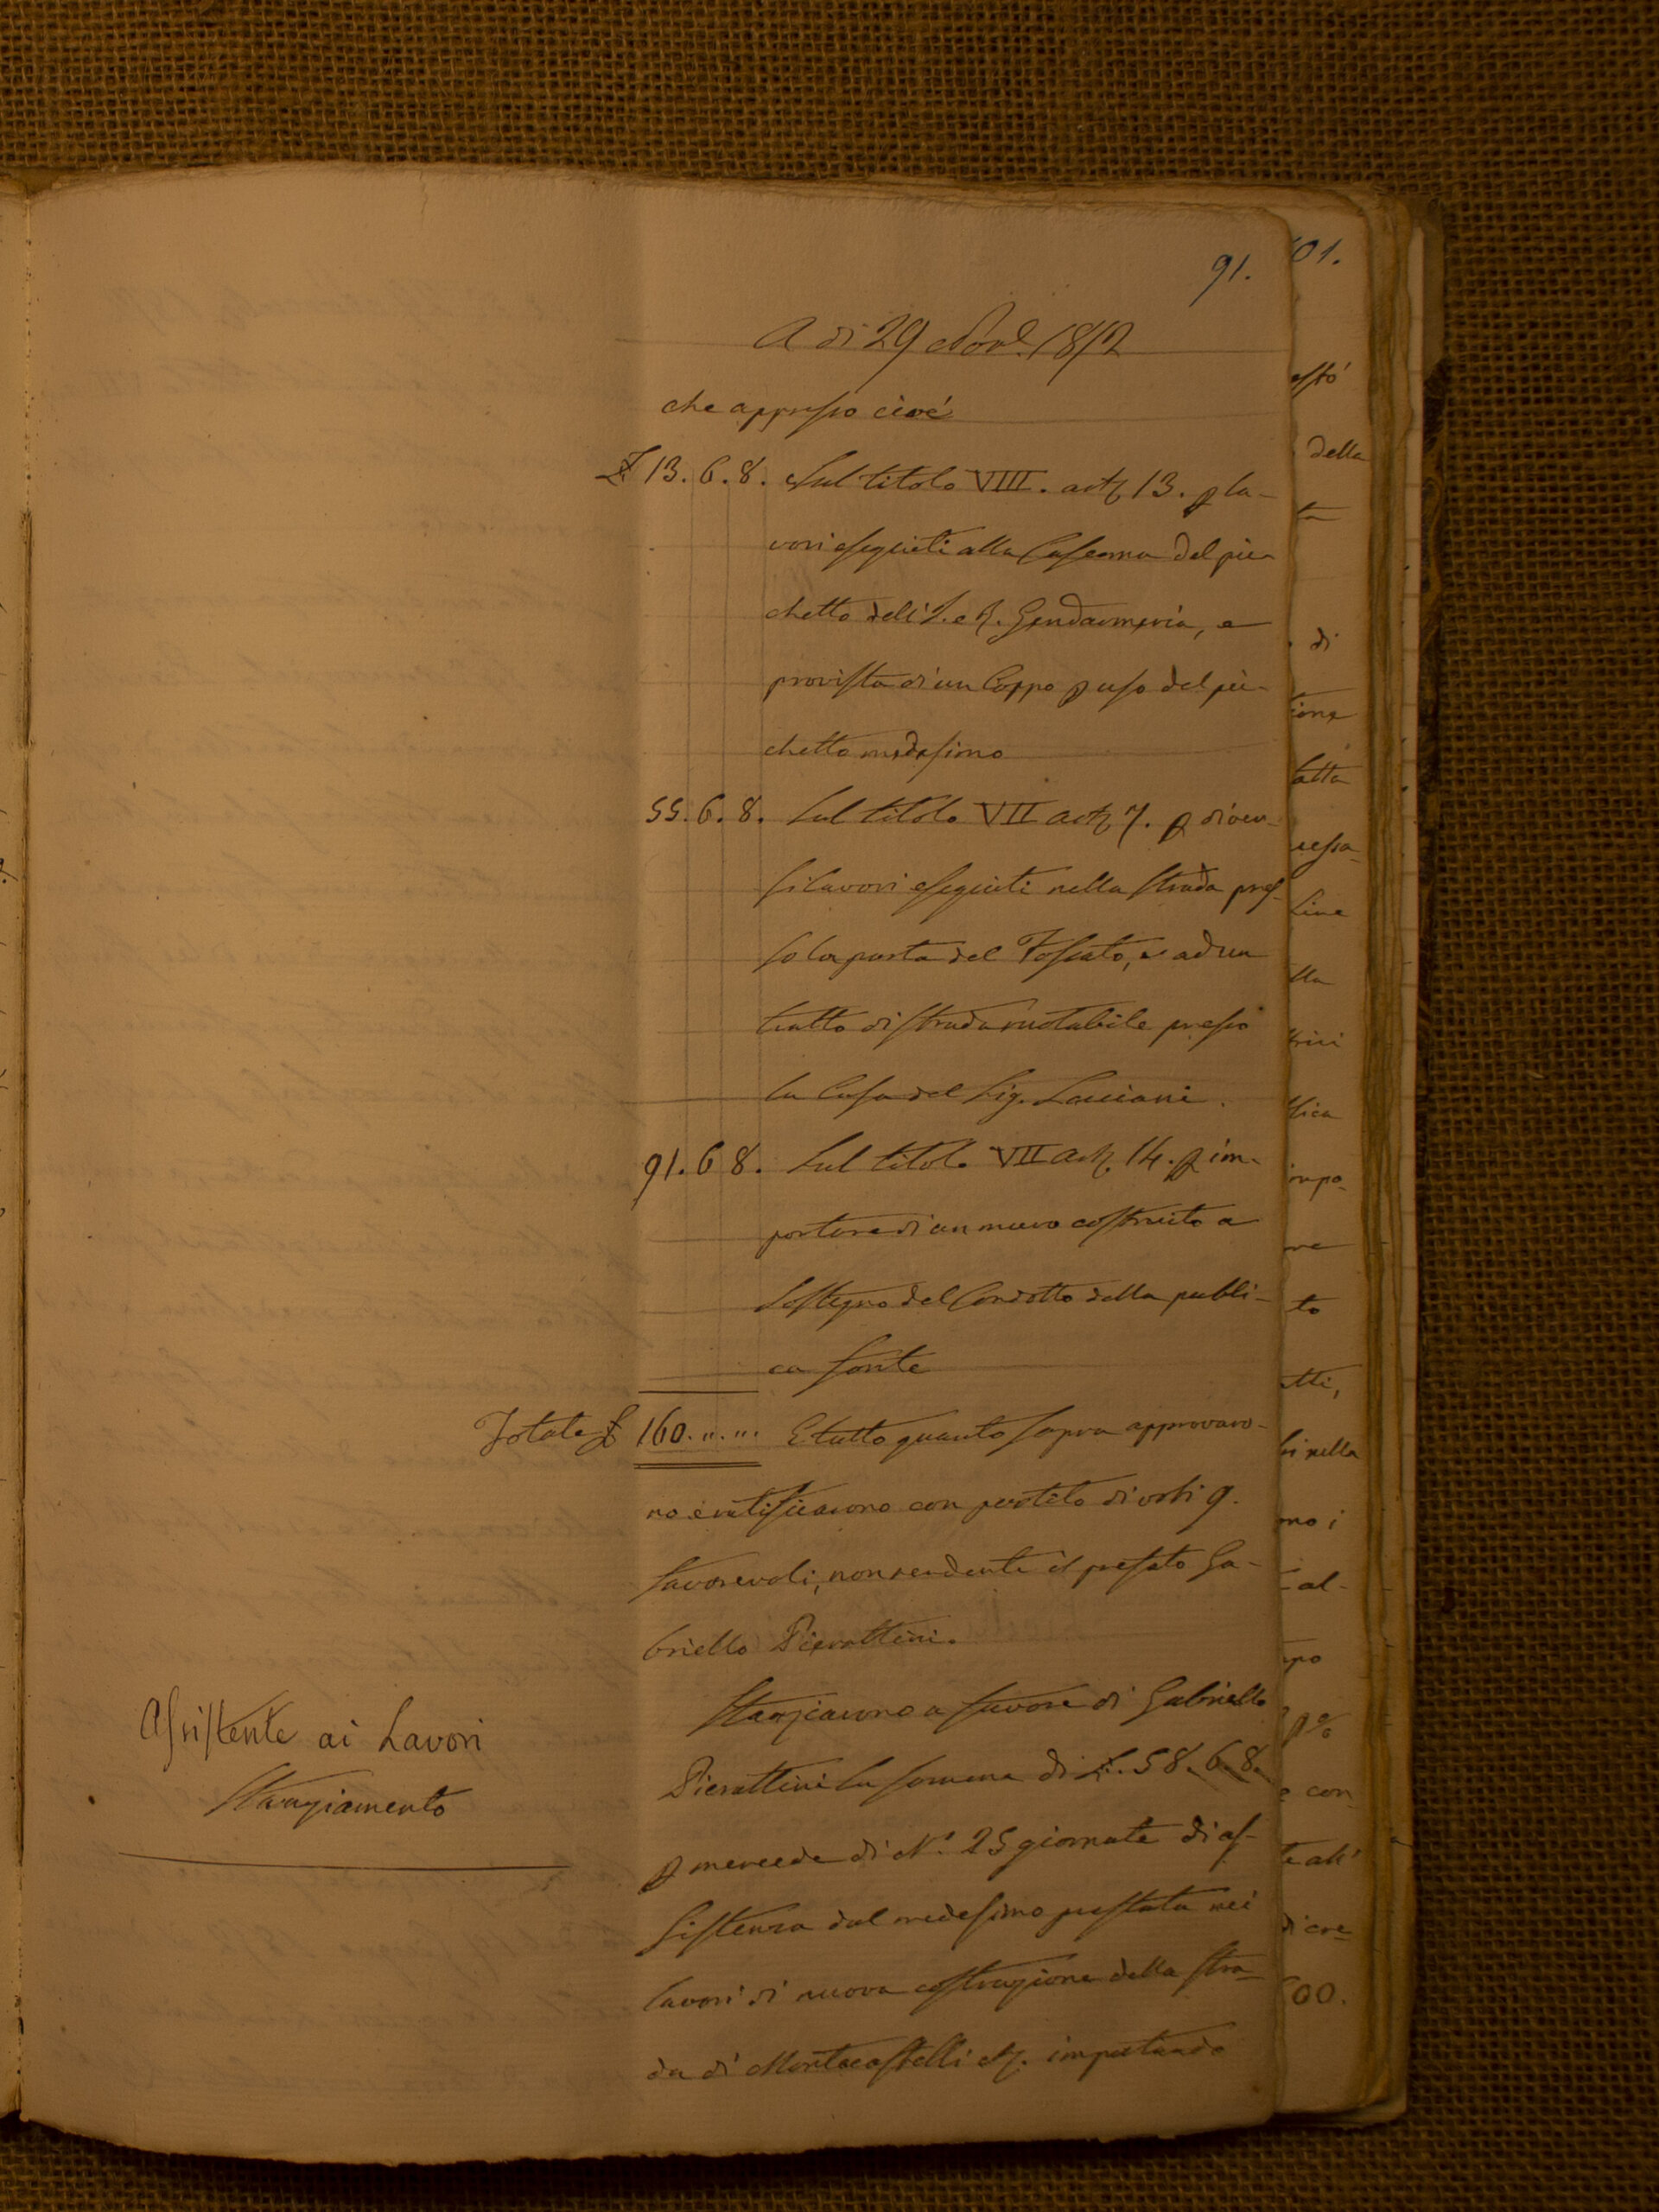 91.
A di 29 Nov.e 1852
che appresso cioè
£ 13. 6. 8. Sul titolo VIII. art. 13. p la-
vori eseguiti alla Caserma del pic-
chetto dell'I. e R. Gendarmeria, e
provista di un Coppo p uso del pic-
chetto medesimo
55. 6. 8. Sul titolo VII art. 7. p diver-
si lavori eseguiti nella strada pres-
so la porta del Fossato, e ad un
tratto di strada ruotabile presso
la Casa del Sig. Luciani.
91. 6 8. Sul titolo VII art. 14. p im-
portare di un muro costruito a
Sostegno del Condotto della pubbli-
ca fonte
Totale £ 160. ,, ,,. E tutto quanto sopra approvaro-
no e ratificarono con partito di voti 9.
favorevoli, non rendente il prefato Ga-
briello Pierattini.
Assistente ai Lavori
Stanziamento
Stanziarono a favore di Gabriello
Pierattini la somma di £. 58. 6. 8.
p mercede di N.° 25 giornate di as-
sistenza dal medesimo prestata nei
lavori di nuova costruzione della stra-
da di Montecastelli imputando
01.
della
di
ione
atta
Sine
lla
impo-
to
nella
i
al-
con
600.